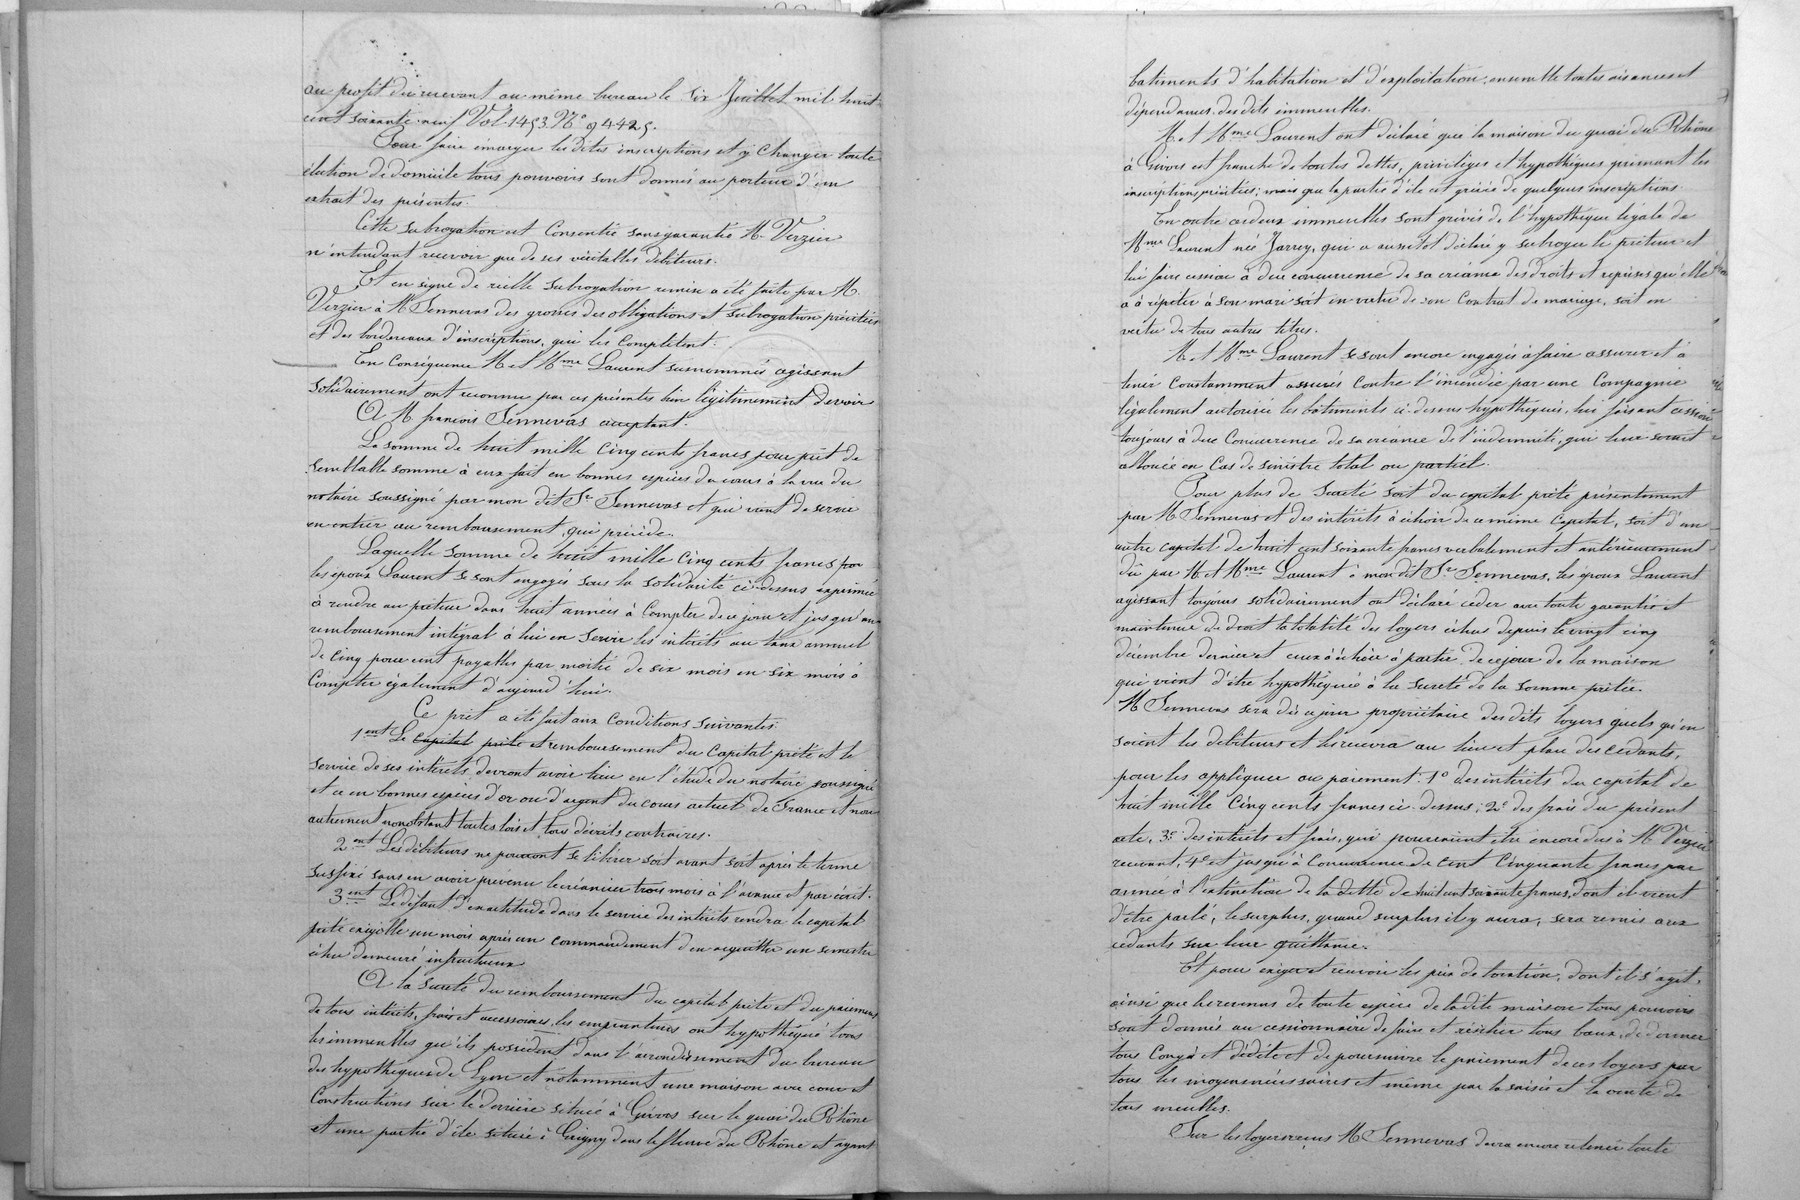 au profit du recevant au même bureau le six Juillet mil huit
cent soixante neuf Vol. 1453 N° 94425.
Pour faire émarger les dites inscriptions et y Changer toute
élection de domicile tous pouvoirs sont donnés au porteur d'un
extrait des présentes.
Cette subrogation est Consentie sans garantie M. Verzier
n'entendant recevoir que de ses véritables débiteurs.
Et en signe de réelle subrogation remise a été faite par M.
Verzier à M Sennevas des grosses des obligations et subrogation précitées
et des bordereaux d'inscriptions, qui les Complètent.
En Conséquence M et Mme Laurent susnommés agissant
solidairement ont reconnu par ces présentes bien légitimement devoir
A M françois Sennevas acceptant.
La somme de huit mille Cinq cents francs pour prêt de
semblable somme à eux fait en bonnes espèces du cours à la vue du
notaire soussigné par mon dit Sr Sennevas et qui vient de servir
en entier au remboursement, qui précède.
Laquelle somme de huit mille Cinq cents francs
les époux Laurent se sont engagés sous la solidarité ci-dessus exprimée
à rendre au prêteur dans huit années à Compter de ce jour et jusqu'au
remboursement intégral à lui en servir les intérêts au taux annuel
de Cinq pour cent payables par moitié de six mois en six mois à
Compter également d'aujourd'hui.
Ce prêt a été fait aux Conditions suivantes.
1ent Le Capital prêté et remboursement du Capital prêté et le
service de ses intérêts devront avoir lieu en l'étude du notaire soussigné
et ce en bonnes espèces d'or ou d'argent du cours actuel de France et non
autrement nonobstant toutes lois et tous décrets contraires.
2ent Les débiteurs ne pourront se libérer soit avant soit après le terme
susfixé sans en avoir prévenu le créancier trois mois à l'avance et par écrit.
3ent Le défaut d'exactitude dans le service des intérêts rendra le capital
prêté exigible un mois après un commandement d'en acquitter un semestre
échu demeuré infructueux
A la sureté du remboursement du capital prêté et du paiement
de tous intérêts, frais et accessoires, les emprunteurs ont hypothéqué tous
les immeubles qu'ils possèdent dans l'arrondissement du bureau
des hypothèques de Lyon et notamment une maison avec cour et
Constructions sur le derrière située à Givors sur le quai du Rhône
et une partie d'île située à Grigny dans le fleuve du Rhône et ayant
batiments d'habitation et d'exploitation, ensemble toutes aisances et
dépendances des dits immeubles.
M. et Mme Laurent ont déclaré que la maison du quai du Rhône
à Givors est franche de toutes dettes, privilèges et hypothèques primant les
inscriptions précitées; mais que la partie d'île est grevée de quelques inscriptions.
En outre ces deux immeubles sont grevés de l'hypothèque légale de
Mme Laurent née Jarrey, qui a aussitôt déclaré y subroger le prêteur et
lui faire cession à due concurrence de sa créance des droits et reprises qu'elle
a à répéter à son mari soit en vertu de son Contrat de mariage, soit en
vertu de tous autres titres.
M. et Mme Laurent se sont encore engagés à faire assurer et à
tenir Constamment assurés Contre l'incendie par une Compagnie
légalement autorisée les bâtiments ci-dessus hypothéqués, lui faisant cession
toujours à due Concurrence de sa créance de l'indemnité, qui leur serait
allouée en Cas de sinistre total ou partiel.
Pour plus de sureté soit du capital prêté présentement
par M Sennevas et des intérêts à échoir de ce même Capital, soit d'un
autre capital de huit cent soixante francs verbalement et antérieurement
dû par M et Mme Laurent à mon dit Sr Sennevas, les époux Laurent
agissant toujours solidairement ont déclaré céder avec toute garantie et
maintenue de droit la totalité des loyers échus depuis le vingt cinq
décembre dernier et ceux à échoir à partir de ce jour de la maison
qui vient d'être hypothéquée à la sureté de la somme prêtée.
M Sennevas sera dès ce jour propriétaire des dits loyers quels qu'en
soient les débiteurs et les recevra au lieu et place des cédants,
pour les appliquer au paiement: 1° des intérêts du capital de
huit mille Cinq cents francs ci-dessus; 2° des frais du présent
acte, 3° des intérêts et frais, qui pourraient être encore dus à M Verzier
recevant, 4° et jusqu'à Concurrence de Cent Cinquante francs par
année à l'extinction de la dette de huit cent soixante francs, dont il vient
d'être parlé; le surplus, quand surplus il y aura, sera remis aux
cédants sur leur quittance.
Et pour exiger et recevoir les prix de location, dont il s'agit,
ainsi que les revenus de toute espèce de la dite maison tous pouvoirs
sont donnés au cessionnaire de faire et résilier tous baux, de donner
tous Congés et dédite et de poursuivre le paiement de ces loyers par
tous les moyens nécessaires et même par la saisie et la vente de
tous meubles.
Sur les loyers reçus M Sennevas devra encore retenir toute